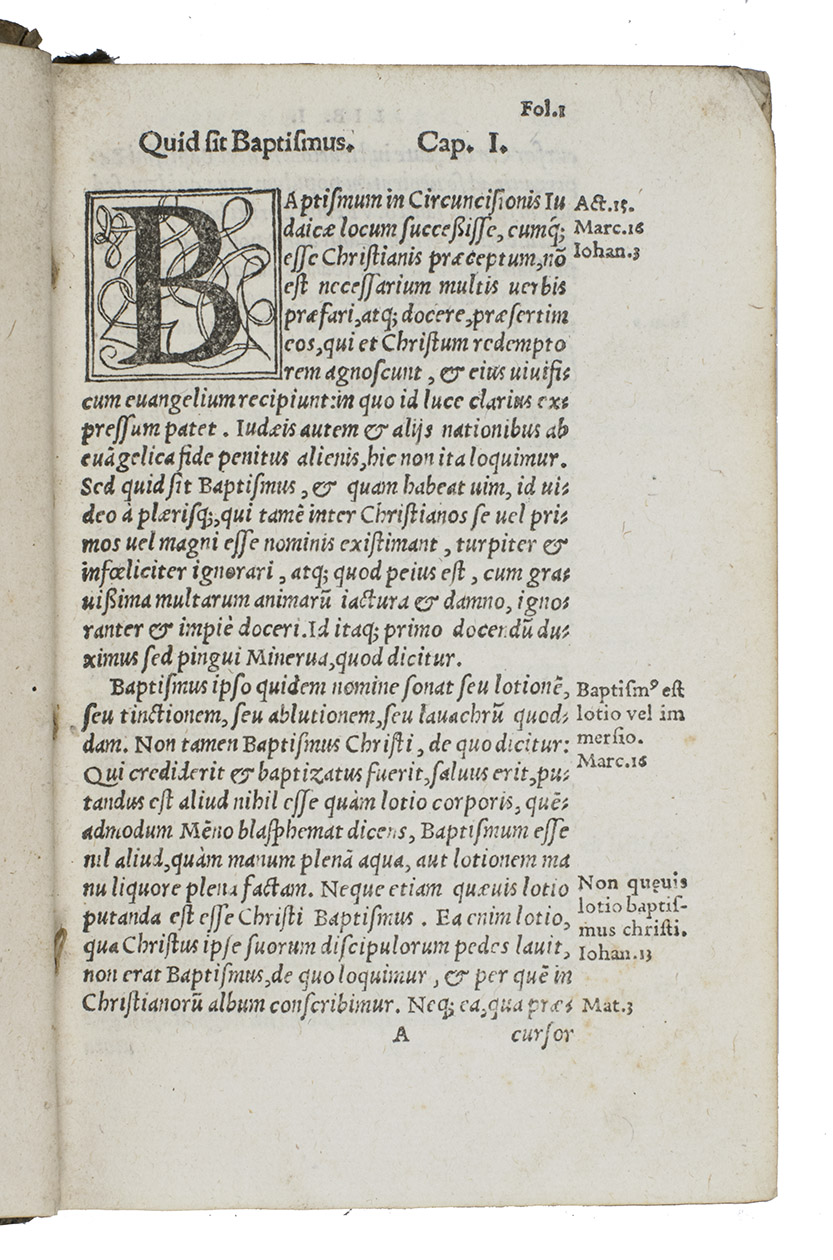 Fol.1
Quid sit Baptiſmus. Cap. I.
BAptiſmum in Circunciſionis Iu
daicæ locum ſucceßiſſe, cumq;
eſſe Chriſtianis præceptum, nō
eſt neceſſarium multis uerbis
præfari, atq; docere, præſertim
eos, qui et Chriſtum redempto
rem agnoſcunt, & eius uiuifi-
cum euangelium recipiunt: in quo id luce clarius ex-
preſſum patet. Iudæis autem & alijs nationibus ab
euāgelica fide penitus alienis, hic non ita loquimur.
Sed quid ſit Baptiſmus, & quam habeat uim, id ui-
deo à plæriſq;, qui tamē inter Chriſtianos ſe uel pri-
mos uel magni eſſe nominis exiſtimant, turpiter &
infœliciter ignorari, atq; quod peius eſt, cum gra-
uißima multarum animarū iactura & damno, igno-
ranter & impiè doceri. Id itaq; primo docendū du-
ximus ſed pingui Minerua, quod dicitur.
Baptiſmus ipſo quidem nomine ſonat ſeu lotionē,
ſeu tinctionem, ſeu ablutionem, ſeu lauachrū quod-
dam. Non tamen Baptiſmus Chriſti, de quo dicitur:
Qui crediderit & baptizatus fuerit, ſaluus erit, pu-
tandus eſt aliud nihil eſſe quàm lotio corporis, quē-
admodum Mēno blaſphemat dicens, Baptiſmum eſſe
nil aliud, quàm manum plenā aqua, aut lotionem ma
nu liquore plena factam. Neque etiam quæuis lotio
putanda eſt eſſe Chriſti Baptiſmus. Ea enim lotio,
qua Chriſtus ipſe ſuorum diſcipulorum pedes lauit,
non erat Baptiſmus, de quo loquimur, & per quē in
Chriſtianorū album conſcribimur. Neq; ea, qua præ-
A curſor
Act.15.
Marc.16
Iohan.3
Baptiſmꝰ eſt
lotio vel im
merſio.
Marc.16
Non quęuis
lotio baptiſ-
mus chriſti.
Iohan.13
Mat.3